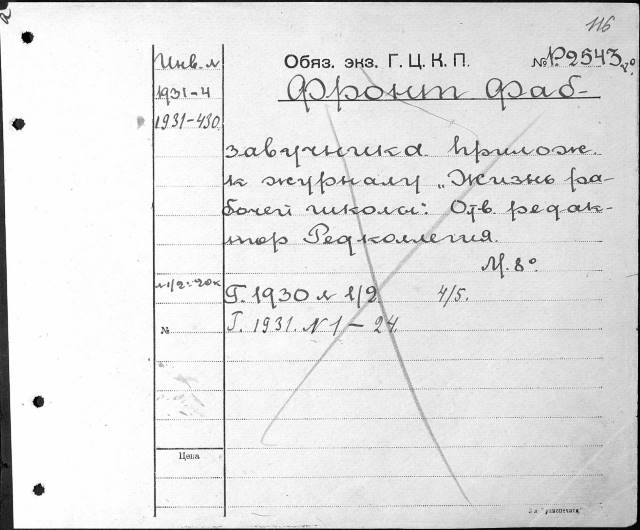 116
Инв. №
Обяз. экз. Г. Ц. К. П.
№ Р.2543 8°.
1931-4
Фронт Фаб-
1931-430
завучника. Прилож.
к журналу „Жизнь ра-
бочей школы". Отв. редак-
тор Редколлегия.
М. 8°
№1/2-20к
Г. 1930 № 1/2. 4/5.
№
Г. 1931. № 1 — 24.
Цена